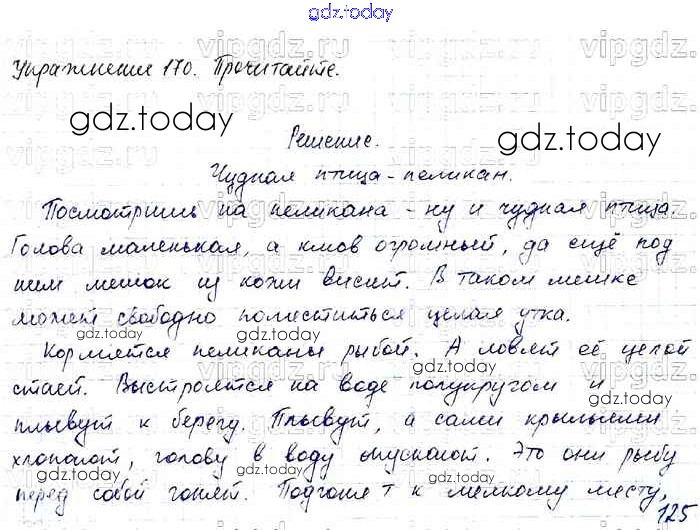 gdz.today
Упражнение 170. Прочитайте.
Решение.
Чудная птица - пеликан.
Посмотришь на пеликана - ну и чудная птица.
Голова маленькая, а клюв огромный, да ещё под
ним мешок из кожи висит. В таком мешке
может свободно поместиться целая утка.
Кормятся пеликаны рыбой. А ловят её целой
стаей. Выстроятся на воде полукругом и
плывут к берегу. Плывут, а сами крыльями
хлопают, голову в воду опускают. Это они рыбу
перед собой гонят. Подгонят к мелкому месту,
125